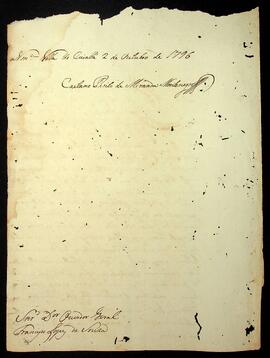 Villa de Cuiabá 2 de Outubro de 1796
Caetano Pinto de Miranda Montenegro
Senr. Dor. Ouvidor Geral
Francisco Lopes de Souza